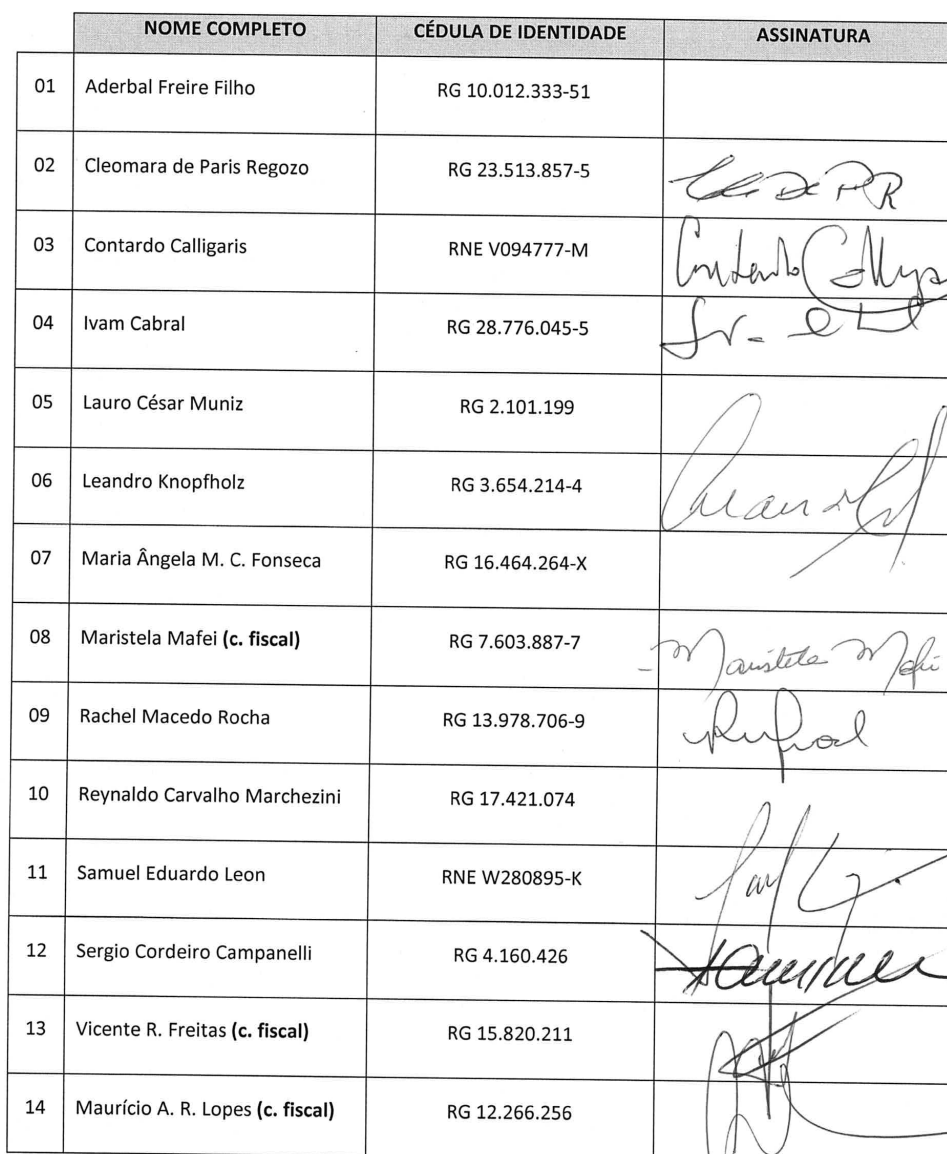 NOME COMPLETO CÉDULA DE IDENTIDADE ASSINATURA
01 Aderbal Freire Filho RG 10.012.333-51
02 Cleomara de Paris Regozo RG 23.513.857-5
03 Contardo Calligaris RNE V094777-M
04 Ivam Cabral RG 28.776.045-5
05 Lauro César Muniz RG 2.101.199
06 Leandro Knopfholz RG 3.654.214-4
07 Maria Ângela M. C. Fonseca RG 16.464.264-X
08 Maristela Mafei (c. fiscal) RG 7.603.887-7 Maristela Mafei
09 Rachel Macedo Rocha RG 13.978.706-9
10 Reynaldo Carvalho Marchezini RG 17.421.074
11 Samuel Eduardo Leon RNE W280895-K
12 Sergio Cordeiro Campanelli RG 4.160.426
13 Vicente R. Freitas (c. fiscal) RG 15.820.211
14 Maurício A. R. Lopes (c. fiscal) RG 12.266.256